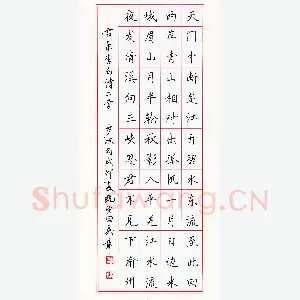 天门中断楚江开碧水东流至此回
两岸青山相对出孤帆一片日边来
峨眉山月半轮秋影入平羌江水流
夜发清溪向三峡思君不见下渝州
李白诗二首
Shufawang.CN